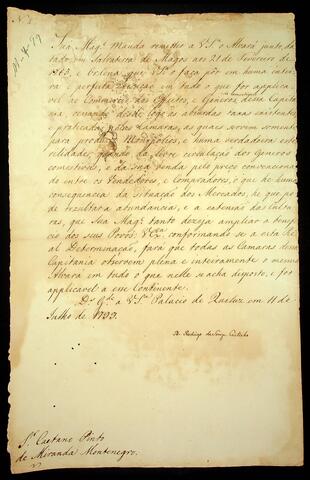 N. 8
Sua Mag.e Manda remetter a V S.a o Alvará junto, da
tado em Salvaterra de Magos aos 21 de Fevereiro de
1765, e Ordena que V S.a o faça pôr em huma intei
ra e perfeita execução em tudo o que for applica
vel ao Commercio dos Effeitos, e Generos dessa Capita
nia, cessando desde logo as absurdas taxas existentes,
e praticadas pelas Camaras, as quaes servem somente
para produzir Monopolios, e huma verdadeira este
rilidade, quando da livre circulação dos Generos
comestiveis, e da sua venda pelo preço convencionado
do entre os Vendedores, e Compradores, o que he huma
consequencia da situação dos Mercados, he que pó
de rezultar a abundancia, e a extensão das Cultu
ras, que Sua Mag.e tanto dezeja ampliar a benefi
cio dos seus Povos. V S.a conformando-se a esta Re
al Determinação, fará que todas as Camaras dessa
Capitania observem plena e inteiramente o mesmo
Alvará em tudo o que nelle se acha disposto, e for
applicavel a esse Continente.
D.s G.de a V S.a Palacio de Queluz em 11 de
Julho de 1799.
D. Rodrigo de Souza Coutinho
S.r Caetano Pinto
de Miranda Montenegro.